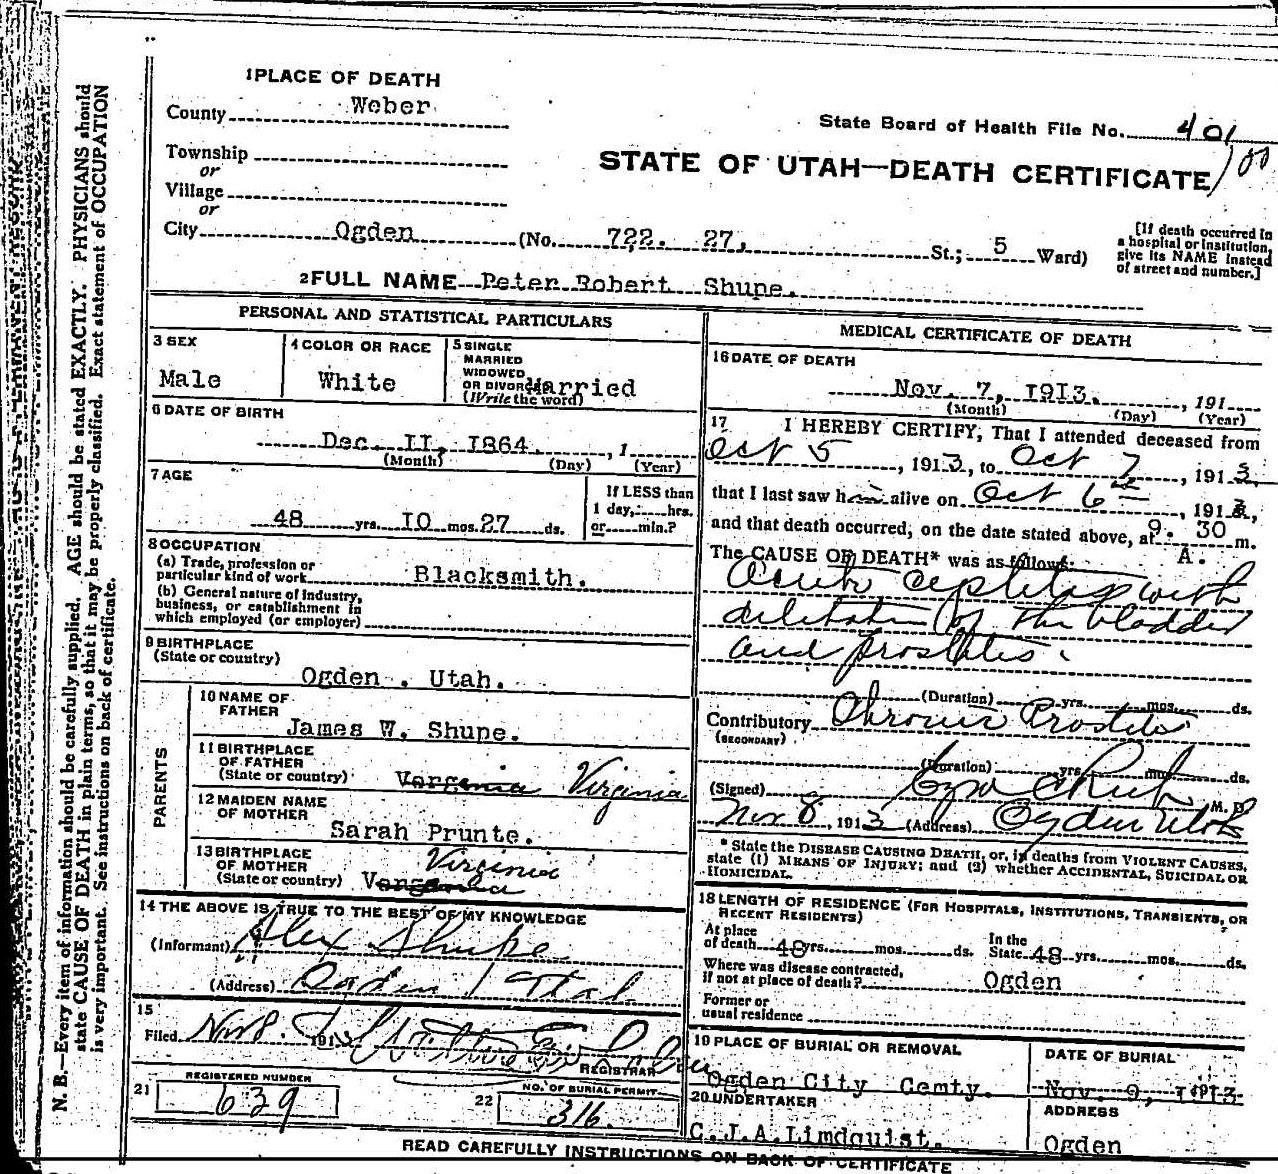 N. B.—Every item of information should be carefully supplied. AGE should be stated EXACTLY. PHYSICIANS should
state CAUSE OF DEATH in plain terms, so that it may be properly classified. Exact statement of OCCUPATION
is very important. See instructions on back of certificate.
1 PLACE OF DEATH
County Weber
State Board of Health File No. 401
Township
or
STATE OF UTAH—DEATH CERTIFICATE
Village
or
City Ogden (No. 722. 27, St.; 5 Ward)
[If death occurred in
a hospital or institution,
give its NAME instead
of street and number.]
2 FULL NAME Peter Robert Shupe.
PERSONAL AND STATISTICAL PARTICULARS
3 SEX
Male
4 COLOR OR RACE
White
5 SINGLE
MARRIED
WIDOWED
OR DIVORCED Married
(Write the word)
6 DATE OF BIRTH
Dec. II, 1864. , 1
(Month) (Day) (Year)
7 AGE
If LESS than
1 day, hrs.
or min.?
48 yrs. IO mos. 27 ds.
8 OCCUPATION
(a) Trade, profession or
particular kind of work Blacksmith.
(b) General nature of industry,
business, or establishment in
which employed (or employer)
9 BIRTHPLACE
(State or country)
Ogden . Utah.
PARENTS
10 NAME OF
FATHER
James W. Shupe.
11 BIRTHPLACE
OF FATHER
(State or country) Vergenia Virginia
12 MAIDEN NAME
OF MOTHER
Sarah Prunte.
13 BIRTHPLACE
OF MOTHER Virginia
(State or country) Vergenia
14 THE ABOVE IS TRUE TO THE BEST OF MY KNOWLEDGE
(Informant) Alex Shupe
(Address) Ogden Utah
15
Filed Nov 8. 191
REGISTRAR
21 REGISTERED NUMBER
639
22 NO. OF BURIAL PERMIT
316.
MEDICAL CERTIFICATE OF DEATH
16 DATE OF DEATH
Nov. 7, I9I3. , 191
(Month) (Day) (Year)
17 I HEREBY CERTIFY, That I attended deceased from
Oct 5 , 1913, to Oct 7 , 1913,
that I last saw him alive on Oct 6th , 1913,
and that death occurred, on the date stated above, at 9. 30 m.
A.
The CAUSE OF DEATH* was as follows:
Acute with
dilitation of the bladder
and prostites.
(Duration) yrs. mos. ds.
Contributory Chronic
(SECONDARY)
(Duration) yrs. mos. ds.
(Signed) M. D.
Nov. 8, 1913 (Address) Ogden Utah
* State the DISEASE CAUSING DEATH, or, in deaths from VIOLENT CAUSES,
state (1) MEANS OF INJURY; and (2) whether ACCIDENTAL, SUICIDAL OR
HOMICIDAL.
18 LENGTH OF RESIDENCE (FOR HOSPITALS, INSTITUTIONS, TRANSIENTS, OR
RECENT RESIDENTS)
At place
of death 48 yrs. mos. ds.
In the
State 48 yrs. mos. ds.
Where was disease contracted,
if not at place of death? Ogden
Former or
usual residence
19 PLACE OF BURIAL OR REMOVAL
Ogden City Cemty.
DATE OF BURIAL
Nov. 9, I9I3
20 UNDERTAKER
C.J.A. Limdquist.
ADDRESS
Ogden
READ CAREFULLY INSTRUCTIONS ON BACK OF CERTIFICATE